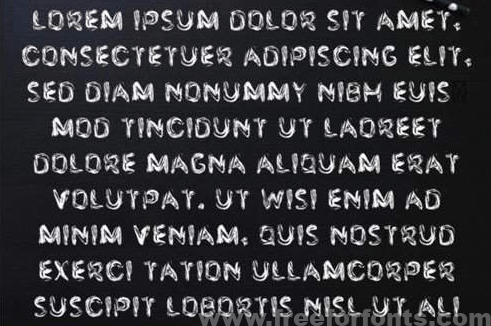 LOREM IPSUM DOLOR SIT AMET,
CONSECTETUER ADIPISCING ELIT,
SED DIAM NONUMMY NIBH EUIS
MOD TINCIDUNT UT LAOREET
DOLORE MAGNA ALIQUAM ERAT
VOLUTPAT. UT WISI ENIM AD
MINIM VENIAM, QUIS NOSTRUD
EXERCI TATION ULLAMCORPER
SUSCIPIT LOBORTIS NISL UT ALI
www.freeforfonts.com